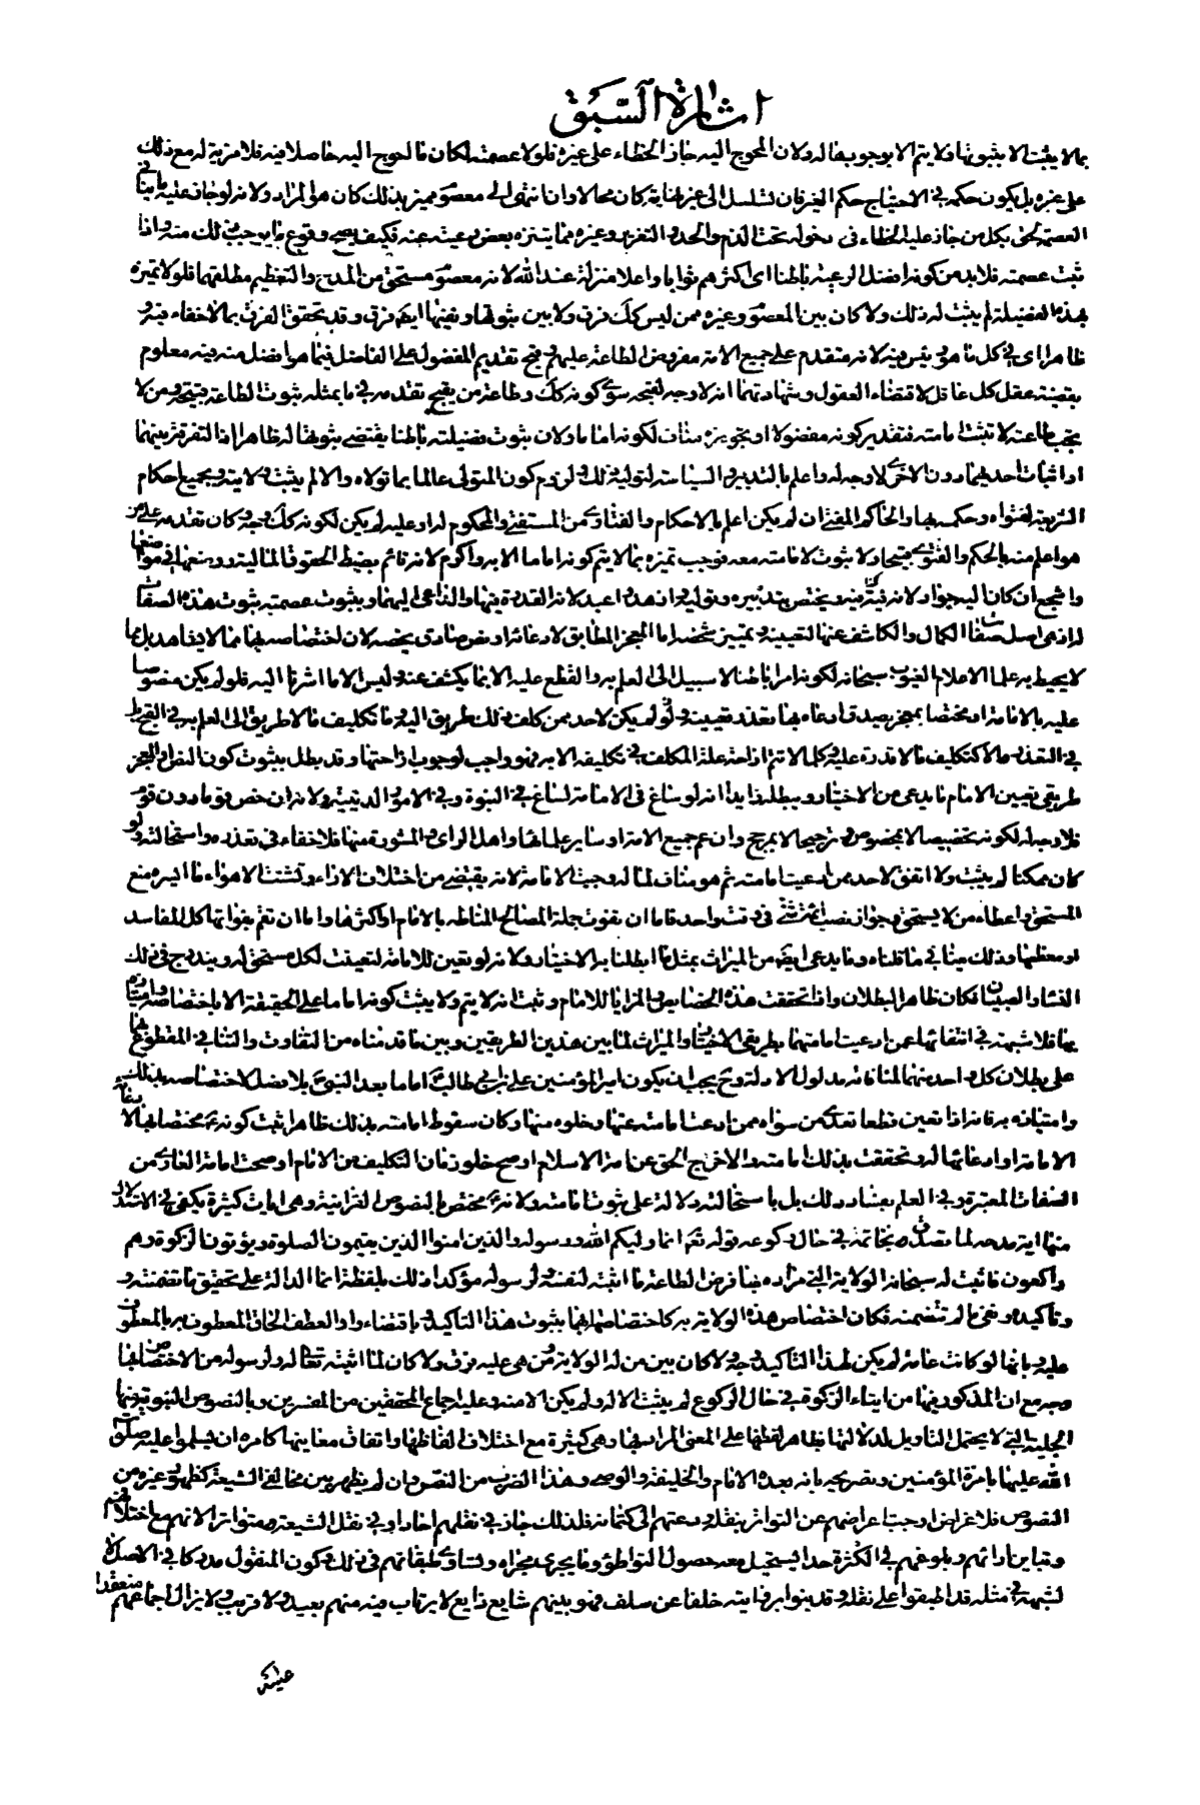 اشارة السبق
بما لا يثبت الا بثبوتها ولا يتم الا بوجوب ماله ولان المحوج اليه جواز الخطاء على غيره فلولا عصمته لكان ما احوج اليه حاصلا فيه فلا مزية له مع ذلك
على غيره بل يكون حكمه فى الاحتياج حكم الغير فان تسلسل الى غير نهاية كان محالا وان انتهى الى معصوم مميز بذلك كان هو المراد ولانه لو جاز عليه ما ينافى
العصمة لحق بكل من جاز عليه الخطاء فى دخوله تحت الذم والحدود والتعزير وغيره مما يتنزه بعض رعيته عنه فكيف يصح وقوع ما يوجب ذلك منه واذا
ثبت عصمته فلا بد من كونه افضل الرعية باطنا اى اكثرهم ثوابا واعلا منزلة عند الله لانه معصوم مستحق من المدح والتعظيم مطلقهما فلولا تميزه
بهذه الفضيلة لم يثبت له ذلك ولا كان بين المعصوم وغيره ممن ليس كك فرق ولا بين ثبوتها ونفيها ايضا فرق وقد تحقق الفرق بما لا خفاء فيه و
ظاهرا اى فى كل ما هو رئيس فيه لانه متقدم على جميع الامة مفروض الطاعة عليهم وقبح تقديم المفضول على الفاضل فيما هو افضل منه فيه معلوم
بقضية عقل كل عاقل لاقتضاء العقول وشهادتها انه لا وجه لقبحه سوى كونه كك وطاعة من يقبح تقدمه فى ما بمثله ثبوت الطاعة قبيحة ومن لا
يجب طاعته لا تثبت امامته فتقدير كونه مفضولا او تجويزه مناف لكونه اماما ولان ثبوت فضيلته باطنا يقتضى ثبوتها له ظاهرا اذ التفرقة بينهما
او اثبات احديهما دون الاخرى لا وجه له واعلم بالتدبير والسياسة لتوليه ذلك ولزوم كون المتولى عالما بما تولاه والا لم يثبت ولايته وبجميع احكام
الشريعة لفتواه وحكمه بها والحاكم المفتى ان لم يكن اعلم بالاحكام والفتاوى من المستفتى والمحكوم له او عليه لم يكن لكونه كك وجه وكان تقدمه على من
هو اعلم منه بالحكم والفتوى قبيحا ولا ثبوت لامامته معه فوجب تميزه بما لا يتم كونه اماما الا به واكرم لانه قائم بضبط الحقوق المالية ووضعها فى مواضعها
واشجع ان كان اليه جهاد ولانه فئة فيه ويختص بتدبيره وتوليه وازهد واعبد لانه القدوة فيهما والداعى اليهما وبثبوت عصمته ثبوت هذه الصفات
له اذ هى اصل صفات الكمال والكاشف عنها لتعيينه وتمييز شخصه اما المعجز المطابق لادعائه او نص صادق يخصه لان اختصاصه بها مما لا يشاهد بل مما
لا يحيط به علما الا علام الغيوب سبحانه لكونه امرا باطنا لا سبيل الى العلم به والقطع عليه الا بما يكشف عنه وليس الا ما اشرنا اليه فلو لم يكن منصوصا
عليه بالامامة او مختصا بمعجز يصدق ادعاه بها تعذر تعيينه ولم يكن لاحد ممن كلف ذلك طريق اليه وما تكليف ما لا طريق الى العلم به فى القبح
فى التعذر الا كتكليف ما لا قدرة عليه وكلما لا تتم ازاحة علة المكلف فى تكليفه الا به فهو واجب لوجوب ازاحتها وقد بطل بثبوت كون النص او المعجز
طريقى تعيين الامام ما يدعى من الاختيار ويبطله زايدا انه لو ساغ فى الامامة لساغ فى النبوة وفى الامور الدينية ولانه ان خص به قوم دون قوم
فلا وجه له لكونه تخصيصا لا بمخصص وترجيحا لا بمرجح وان عم جميع الامة او ساير علمائها واهل الراى والمشورة منها فلا خفاء فى تعذره واستحالته ولو
كان ممكنا لم يثبت ولا اتفق لاحد ممن ادعيت امامته ثم هو مناف لما له وجبت الامامة لانه يقتضى من اختلاف الاراء وتشتت الاهواء ما اليسره منع
المستحق واعطاء من لا يستحق وجواز نصب ائمة شتى فى وقت واحد فاما ان يفوت جملة المصالح المناطة بالامام او اكثرها واما ان تعم بفواتها كل المفاسد
او معظمها وذلك مناف ما قلناه وما يدعى ايضا من الميراث بمثل ما ابطلنا به الاختيار ولانه لو تعين للامامة لتعينت لكل مستحق له ويندرج فى ذلك
النساء والصبيان فكان ظاهر البطلان واذا تحققت هذه الخصايص والمزايا للامام وثبت انه لا يتم ولا يثبت كونه اماما على الحقيقة الا باختصاصه
بها فلا شبهة فى انتفائها عن ادعيت امامتهما بطريقى الاختيار والميراث لما بين هذين الطريقين وبين ما قدمناه من التفاوت والتنافى المقطوع بهما
على بطلان كل واحد منهما لمنافاته مدلول الادلة وح يجب ان يكون امير المؤمنين على بن ابى طالب اماما بعد النبى بلا فصل لاختصاصه بذلك
وامتيازه به فانه اذا تعين قطعا تعدى من سواه ممن ادعت امامته عنها وخلوه منها وكان سقوط امامته بذلك ظاهرا ثبت كونه ع مختصا بها والا
الامامة او ادعائها له وتحققت بذلك امامته والا خرج الحق عن امة الاسلام او صح خلو زمان التكليف من الامام او صحت امامة العارى من
الصفات المعتبرة وفى العلم بفساد ذلك بل باستحالته دلالة على ثبوت امامته ولانه ع مختص بالنصوص القرانية وهى ايات كثيرة يكفى فى الاستدلال
منها اية مدحه لما تصدق بخاتمه فى حال ركوعه قوله تع انما وليكم الله ورسوله والذين امنوا الذين يقيمون الصلوة ويؤتون الزكوة وهم
راكعون فاثبت له سبحانه الولاية التى مراده بها فرض الطاعة ما اثبته لنفسه ولرسوله مؤكدا ذلك بلفظة انما الدالة على تحقيق ما تضمنته و
وتاكيده ونفى ما لم تتضمنه فكان اختصاص هذه الولاية به كاختصاصها بهما بثبوت هذا التاكيد وباقتضاء واو العطف الحاق المعطوف به بالمعطوف
عليه وبانها لو كانت عامة لم يكن لهذا التاكيد وجه ولا كان بين من له الولاية ومن هى عليه فرق ولا كان لما اثبته تعالى له ولرسوله من الاختصاص بها
وجه مع ان المذكور فيها من ايتاء الزكوة فى حال الركوع لم يثبت الا له ولم يكن الا منه وعليه اجماع المحققين من المفسرين وبالنصوص النبوية منها
الجلية التى لا يحتمل التاويل لدلالتها بظاهر لفظها على المعنى المراد بها وهى كثيرة مع اختلاف الفاظها واتفاق معانيها كامره ان يسلموا عليه صلى
الله عليهما بامرة المؤمنين وتصريحه بانه بعده الامام والخليفة والوصى وهذا الضرب من النصوص وان لم يظهر بين مخالفى الشيعة كظهور غيره من
النصوص فلاغراض اوجبت اعراضهم عن التواتر بنقله ودعتهم الى كتمانه فلذلك جاز فى نقلهم احادا وفى نقل الشيعة متواترا لانهم مع اختلافهم
وتباين ارائهم وبلوغهم فى الكثرة حدا يستحيل معه حصول التواطؤ وما يجرى مجراه وتساوى طبقاتهم فى ذلك وكون المنقول مدركا فى الاصل لا
شبهة فى مثله قد اطبقوا على نقله وتدينوا بروايته خلفا عن سلف فهو بينهم شايع ذايع لا يرتاب فيه منهم بعيد ولا قريب ولا يزال اجماعهم منعقدا
عليه